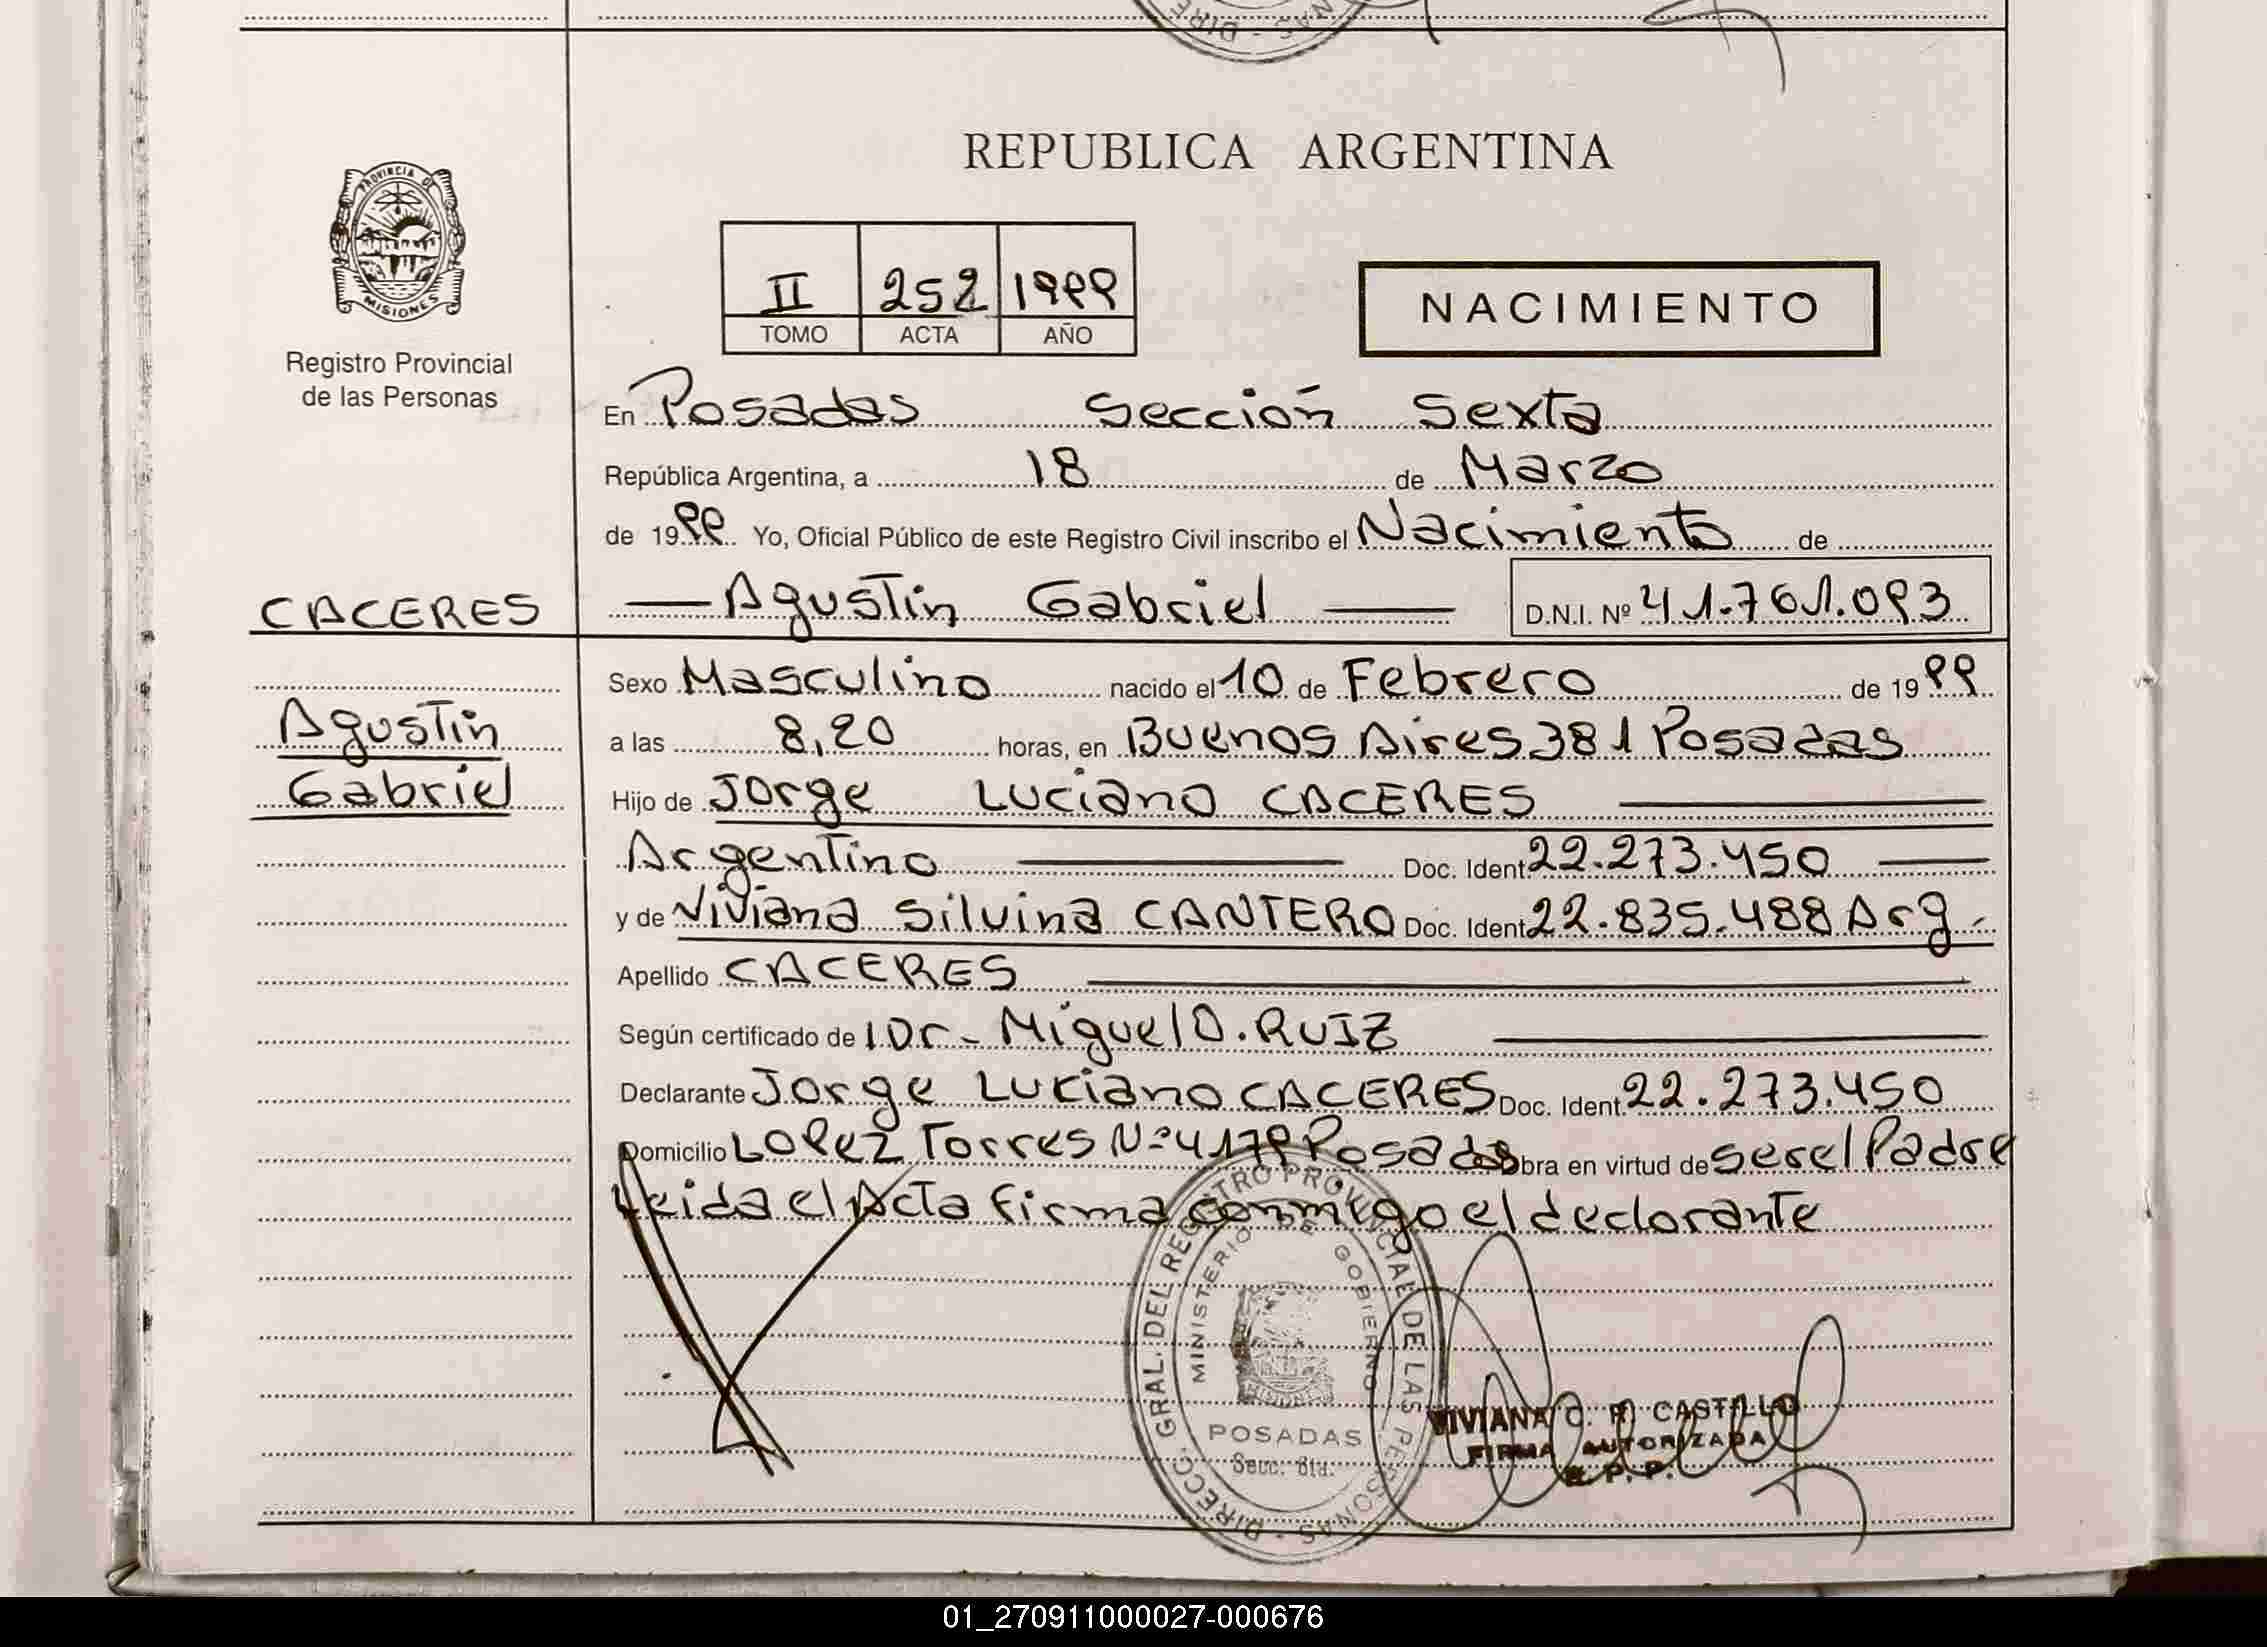 REPUBLICA ARGENTINA
PROVINCIA DE
MISIONES
Registro Provincial
de las Personas
II 252 1999
TOMO ACTA AÑO
NACIMIENTO
En Posadas Sección Sexta
República Argentina, a 18 de Marzo
de 1999 Yo, Oficial Público de este Registro Civil inscribo el Nacimiento de
CACERES
Agustin
Gabriel
— Agustin Gabriel — D.N.I. Nº 41.761.093
Sexo Masculino nacido el 10 de Febrero de 1999
a las 8,20 horas, en Buenos Aires 381 Posadas
Hijo de Jorge Luciano CACERES
Argentino Doc. Ident. 22.273.450
y de Viviana Silvina CANTERO Doc. Ident. 22.835.488 Arg.
Apellido CACERES
Según certificado de l Dr. Miguel O. RUIZ
Declarante Jorge Luciano CACERES Doc. Ident. 22.273.450
Domicilio Lopez Torres Nº 4179 Posadas obra en virtud de ser el Padre
Leida el Acta firma conmigo el declarante
DIRECC. GRAL. DEL REGISTRO PROVINCIAL DE LAS PERSONAS
MINISTERIO DE GOBIERNO
MISIONES
POSADAS
Secc. 6ta.
VIVIANA C. R. CASTILLO
FIRMA AUTORIZADA
R. P. P.
01_270911000027-000676